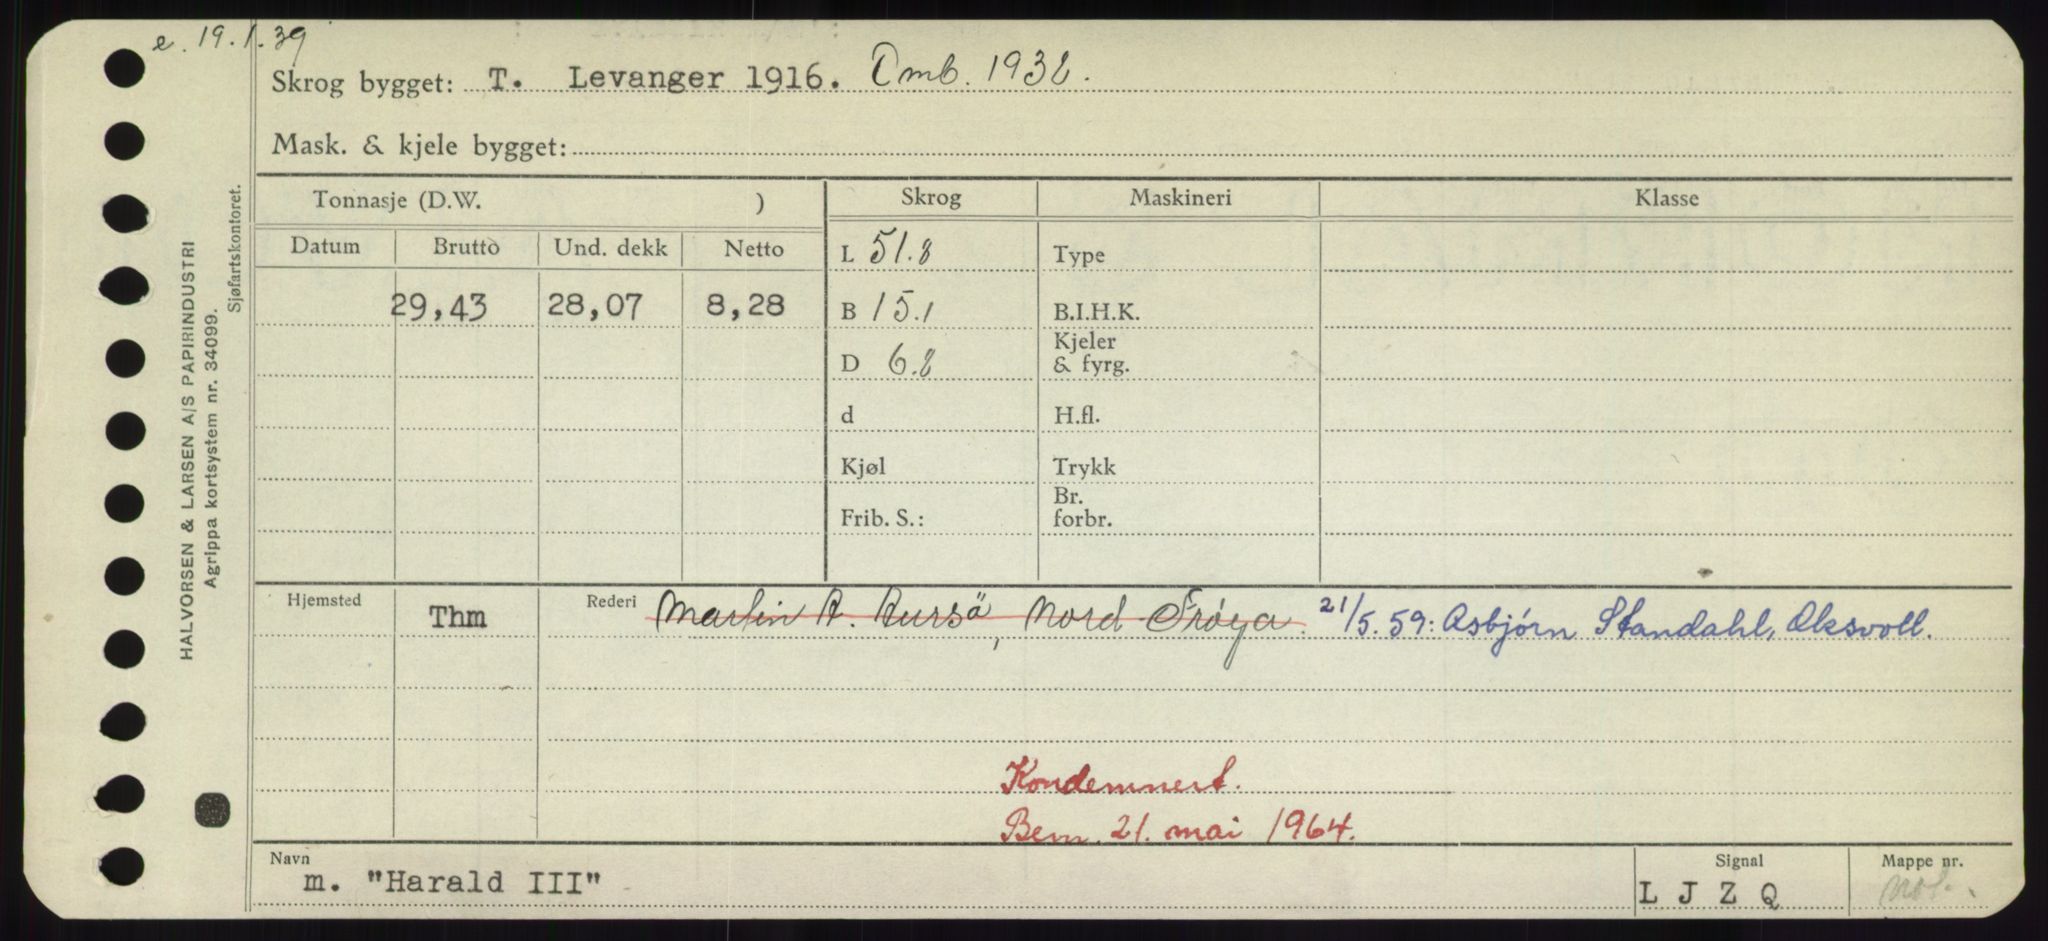 e. 19.1.39
Skrog bygget: T. Levanger 1916. Omb. 1932.
Mask. & kjele bygget:
Tonnasje (D.W. ) Skrog Maskineri Klasse
Datum Brutto Und. dekk Netto L 51.8 Type
29,43 28,07 8,28 B 15.1 B.I.H.K.
D 6.8 Kjeler & fyrg.
d H.fl.
Kjøl Trykk
Frib. S.: Br. forbr.
Hjemsted Thm Rederi Martin A. Aursö, Nord-Frøya. 21/5.59: Asbjørn Standahl, Oksvoll.
Kondemnert.
Bem. 21. mai 1964.
Navn Signal Mappe nr.
m. "Harald III" L J Z Q
HALVORSEN & LARSEN A/S PAPIRINDUSTRI
Agrippa kortsystem nr. 34099.
Sjøfartskontoret.